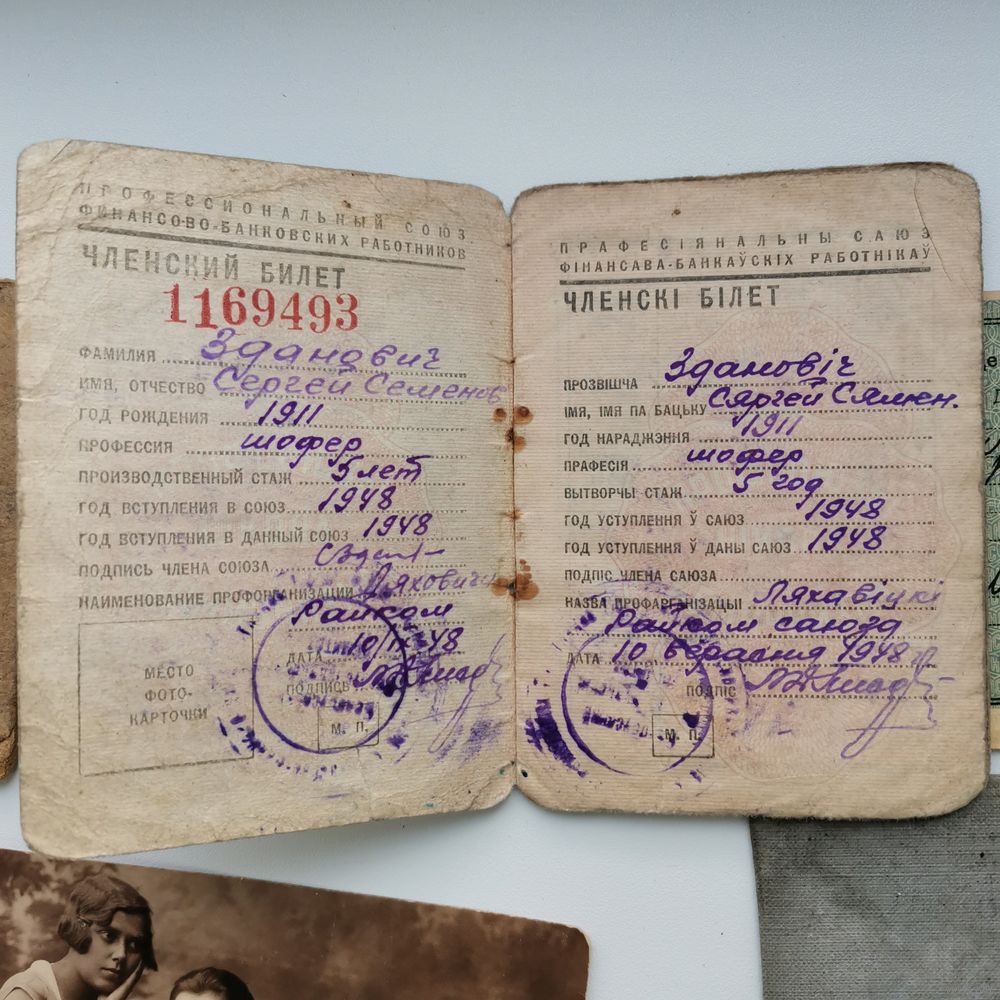 ПРОФЕССИОНАЛЬНЫЙ СОЮЗ
ФИНАНСОВО-БАНКОВСКИХ РАБОТНИКОВ
ЧЛЕНСКИЙ БИЛЕТ
1169493
ФАМИЛИЯ Зданович
ИМЯ, ОТЧЕСТВО Сергей Семенов
ГОД РОЖДЕНИЯ 1911
ПРОФЕССИЯ шофер
ПРОИЗВОДСТВЕННЫЙ СТАЖ 5 лет
ГОД ВСТУПЛЕНИЯ В СОЮЗ 1948
ГОД ВСТУПЛЕНИЯ В ДАННЫЙ СОЮЗ 1948
ПОДПИСЬ ЧЛЕНА СОЮЗА
НАИМЕНОВАНИЕ ПРОФОРГАНИЗАЦИИ Ляховичи
Райком
ДАТА 48
ПОДПИСЬ
МЕСТО
ФОТО-
КАРТОЧКИ
М. П.
ПРАФЕСІЯНАЛЬНЫ САЮЗ
ФІНАНСАВА-БАНКАЎСКІХ РАБОТНІКАЎ
ЧЛЕНСКІ БІЛЕТ
ПРОЗВІШЧА Здановіч
ІМЯ, ІМЯ ПА БАЦЬКУ Сяргей Сямен.
ГОД НАРАДЖЭННЯ 1911
ПРАФЕСІЯ шофер
ВЫТВОРЧЫ СТАЖ 5 год
ГОД УСТУПЛЕННЯ Ў САЮЗ 1948
ГОД УСТУПЛЕННЯ Ў ДАНЫ САЮЗ 1948
ПОДПІС ЧЛЕНА САЮЗА
НАЗВА ПРОФАРГАНІЗАЦЫІ Ляхавіцкі
Райком саюза
ДАТА 10 верасня 1948
ПОДПІС
М. П.